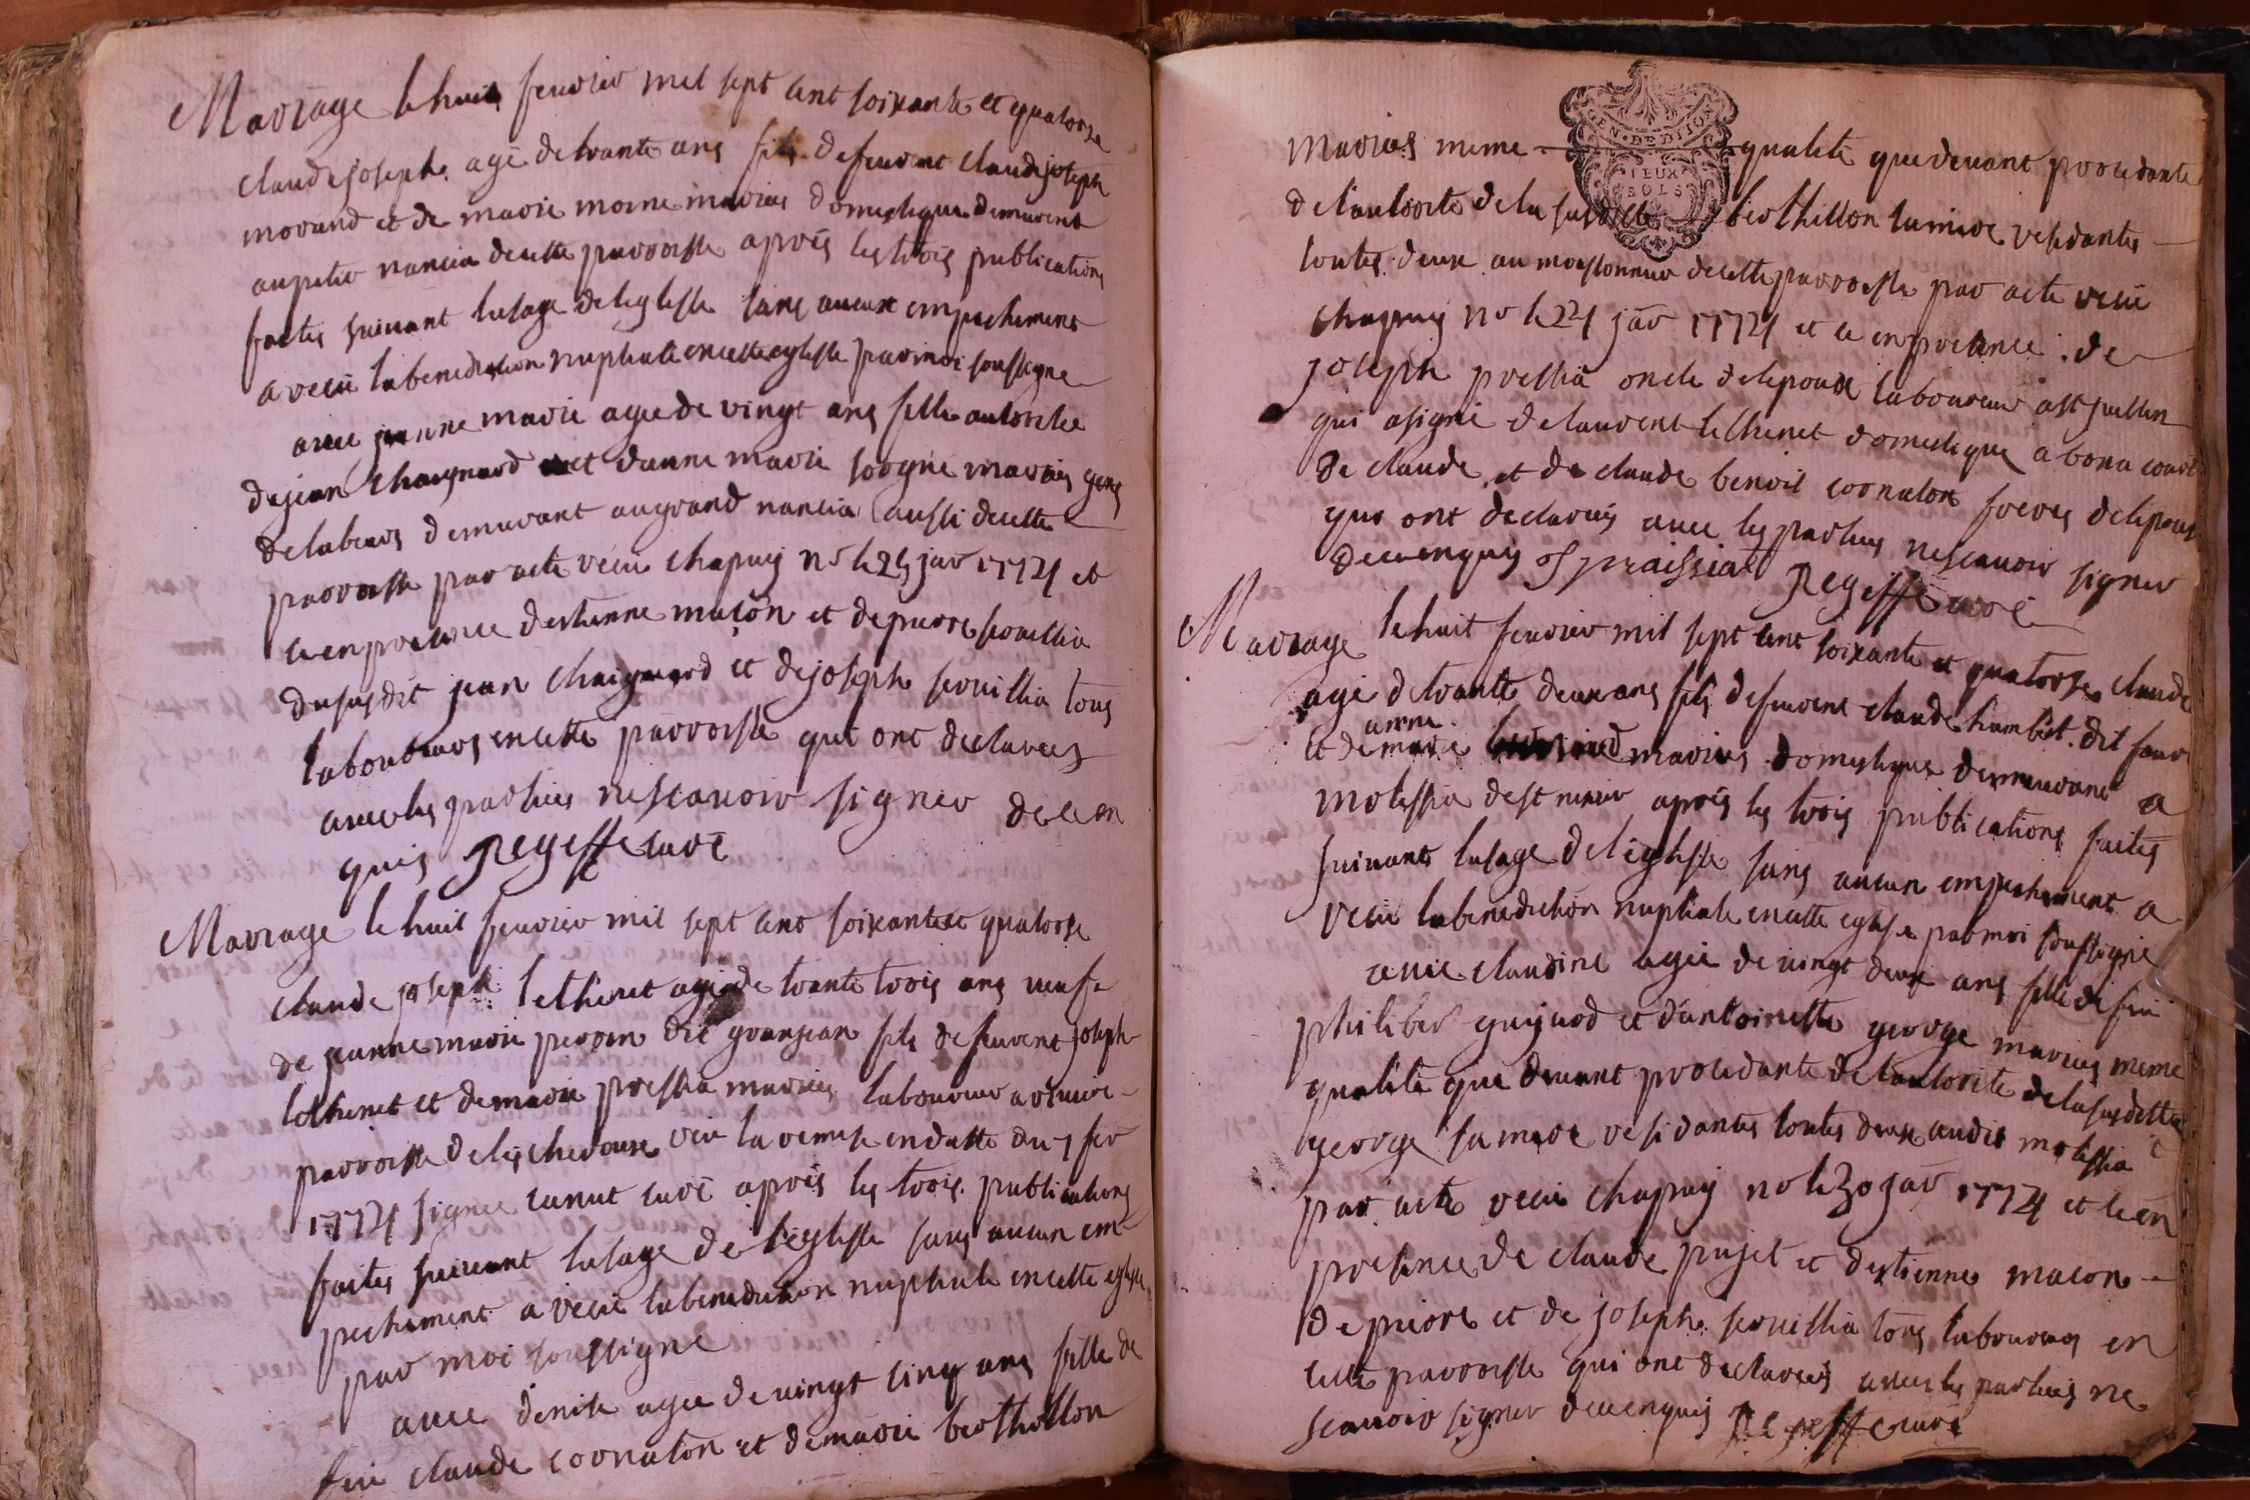 Mariage le huit fevrier mil sept cent soixante et quatorze
claude joseph agé de trante ans fils de feurent claude joseph
morand et de marie morne mariés domestique demeurent
au petit nancia de cette parroisse après les trois publications
faites suivant lusage de leglisse sans aucun empechement
a reçu la benediction nuptiale en cette eglisse par moi soussigné
avec jeanne marie agée de vingt ans fille autorisée
de jean chaignard et danne marie sorgne mariés gens
de labeurs demeurant au grand nancia aussi de cette
parroisse par acte reçu chapuis nre le 25 jav 1774 et
ce en presence destienne maçon et de pierre sevellia
du susdit jean chaignard et de joseph sevillia tous
laboureurs en cette parroisse qui ont declarées
avec les parties ne scavoir signer de ce en
quis Regeffe curé
Mariage le huit fevrier mil sept cent soixante et quatorze
claude joseph lethenet agé de trante trois ans veuf
de jeanne marie perrin dit granjean fils de feurent joseph
lethenet et de marie pressia mariés laboureur a
parroisse de les chevroux veu la remise en datte du 7 fev
1774 signée canut curé après les trois publications
faites suivant lusage de leglisse sans aucun em
pechement a reçu la benediction nuptiale en cette eglisse
par moi soussigné
avec denise agée de vingt cinq ans fille de
feu claude cornaton et de marie berthillon
mariés meme qualité que devant procedante
de lautorité de la susditte berthillon sa mere residantes
toutes deux au moissonnier de cette parroisse par acte reçu
chapuis nre le 24 jav 1774 et ce en presence de
joseph pressia oncle de lepoux laboureur a st jullin
qui a signé de laurent lethenet domestique a bona court
de claude et de claude benoit cornaton freres de lepouse
qui ont declarés avec les parties ne scavoir signer
de ce enquis J praissiat Regeffe curé
Mariage le huit fevrier mil sept cent soixante et quatorze claude
agé de trante deux ans fils de feurent claude humbert dit favr
anne
et de marie mariés domestique demeurant a
molissia dest nisier après les trois publications faites
suivant lusage de leglisse sans aucun empechement a
reçu la benediction nuptiale en cette eglise par moi soussigné
avec claudine agée de vingt deux ans fille de feu
philiber guignod et dantoinette george mariés meme
qualité que devant procedante de lautorité de la susditte
george sa mere residantes toutes deux audit molissia
par acte reçu chapuis no le 30 jav 1774 et ce en
presence de claude pujet et destienne macon
de pierre et de joseph sevillia tous laboureurs en
cette parroisse qui ont declarées avec les parties ne
scavoir signer de ce enquis Regeffe curé
GEN · DE DIJON
DEUX
SOLS